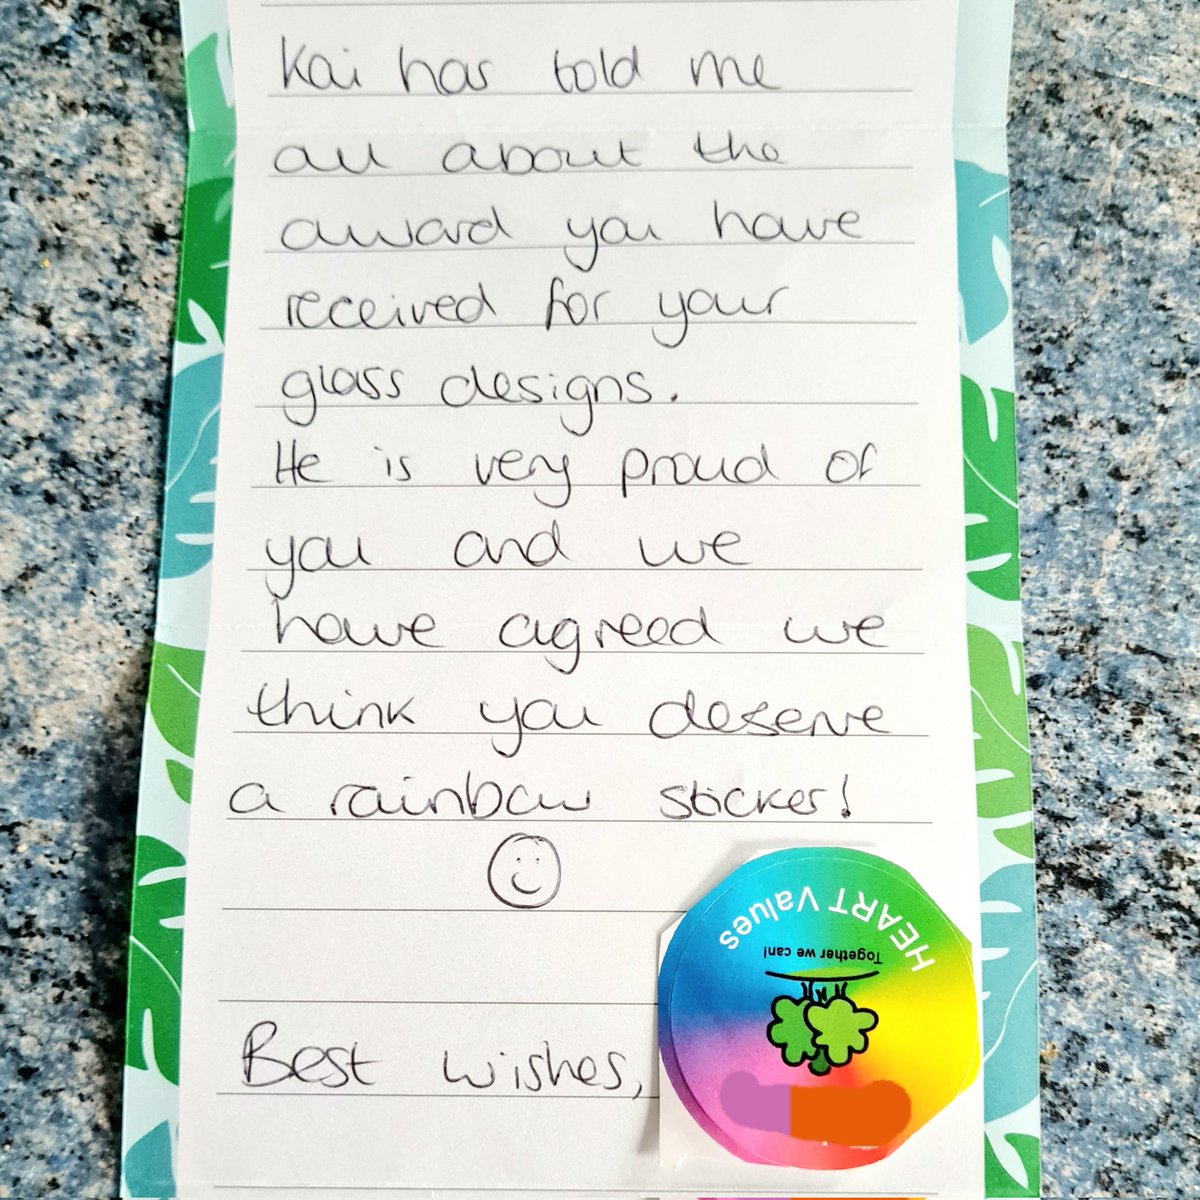 Kai has told me
all about the
award you have
received for your
glass designs.
He is very proud of
you and we
have agreed we
think you deserve
a rainbow sticker!
Best wishes,
HEART Values
Together we can!